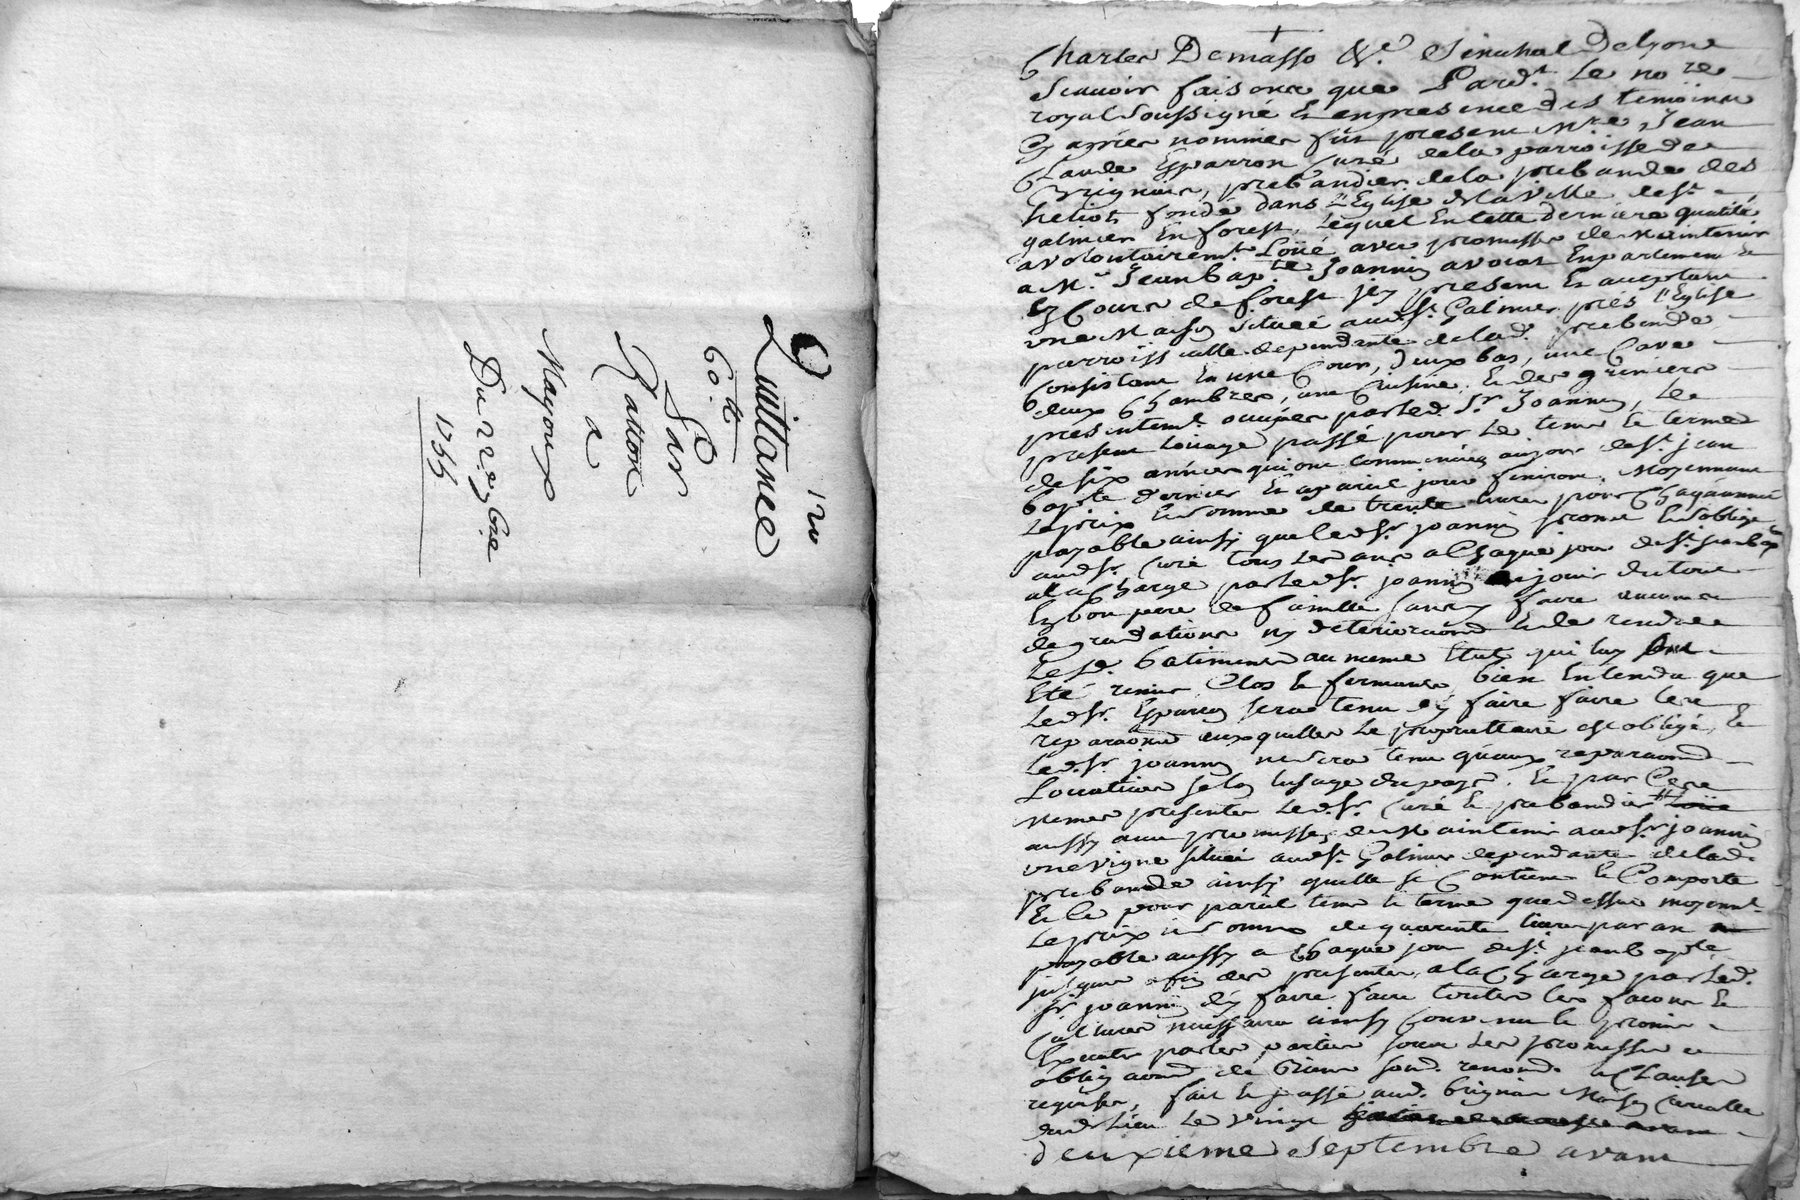 120
Quittance
60.tt
Par
Ratton
a
Mayoux
Du 22e 7bre
1755
Charles Demasso &.e Sénéchal de Lyon
Scavoir faisons que Pard.t Le no.re
royal Soussigné Et en presence des temoins
cy aprés nommés fût present M.re Jean
Claude Esparron Curé de la parroisse de
Grignieu, prebandier de la prebande des
heliots fondé dans l'Eglise de la Ville de St
galmier En forest, Lequel En cette derniere qualité
a volontairem.t Loüé avec promesse de Maintenir
a M.r Jean bap.te Joannin avocat En parlement &
Ez Cours de forest icy present Et acceptant
une Maison Située aud. St. Galmier prés l'Eglise
parroissialle dependante de lad. prebande,
Consistant En une Cour, deux bas, une Cave
deux Chambres, une Cuisine, Et des greniers
presentem.t occupés par led. Sr. Joannin, Le
present Louage passé pour Le tems Et terme
de six années qui ont commencées au jour de St. jean
bap.te dernier Et a pareil jour finiront, Moyennant
Le prix Et somme de trente livres pour Chaq année
payable ainsy que led. Sr. joannin promet Et s'oblige
aud. Sr. Curé tous Les ans a Chaque jour de St. jean bap.
a la Charge par led. Sr. joannin de jouir du tout
En bon pere de famille sans y faire aucunes
degradations ny deteriora.ons Et de rendre
Les d. batiments au meme Etat qui luy ont
Eté remis Clos Et fermants, bien Entendu que
Led. Sr. Esparron sera tenu d'y faire faire Les
repara.ons auxquelles Le proprietaire est obligé, Et
Led. Sr. joannin ne sera tenu qu'aux repara.ons
Locatives selon l'usage du pays. Et par Ces
Memes presentes Led. Sr. Curé Et prebandier Loüe
aussy avec promesse de Maintenir aud. Sr joannin
une vigne située aud. St. Galmier dependante de lad.
prebande ainsy quelle se Contient Et Comporte
Et Ce pour pareil tems Et terme que dessus moyenn.t
Le prix Et somme de quarante livres par an
payable aussy a Chaque jour de St. jean bap.te
jusques a fin des presentes, a la Charge par led.
Sr. joannin d'y faire faire toutes les facons Et
Cultures necessaires ainsy Convenu Et promis
Executer par les parties sous Les promesses
oblig.aons de biens soud. renond. Et Clauses
requises, fait Et passé aud. Grignieu Maison Curialle
dud. Lieu Le vingt
deuxieme Septembre avant